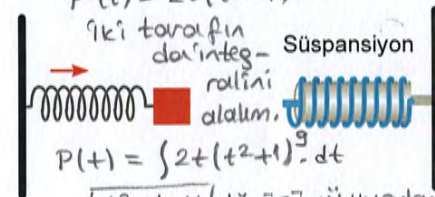 iki tarafın
da integ-
ralini
alalım.
Süspansiyon
P(t) = ∫2t(t²+1)⁹. dt